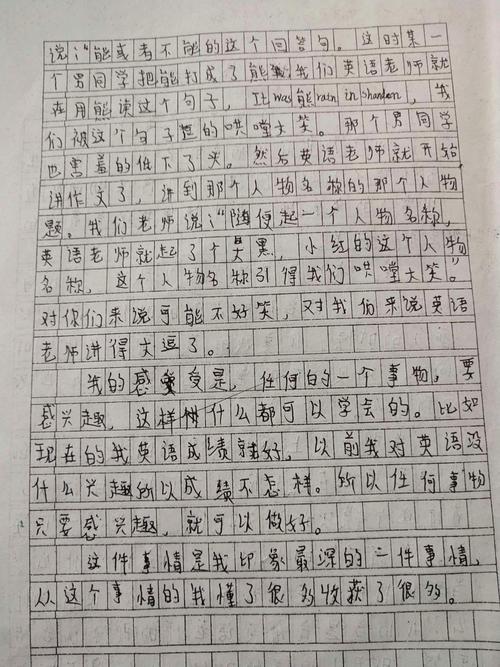 说:"能或者不能的这个回答句。这时某一
个男同学把能打成了熊,我们英语老师就
在用熊读这个句子,It was熊rain in shandon,我
们被这个句子逗的哄堂大笑。那个男同学
也害羞的低下了头。然后英语老师就开始
讲作文了,讲到那个人物名称的那个人物
题。我们老师说:"随便起一个人物名称,
英语老师就起了个黑,小红的这个人物
名称,这个人物名称引得我们哄堂大笑。"
对你们来说可能不好笑,又对我们来说英语
老师讲得太逗了。
我的感受是,任何的一个事物,要
感兴趣,这样什么都可以学会的。比如
现在的我英语成绩就好,以前我对英语没
什么兴趣所以成绩不怎样。所以任何事物
只要感兴趣,就可以做好。
这件事情是我印象最深的一件事情,
从这个事情的我懂了很多收获了很多。